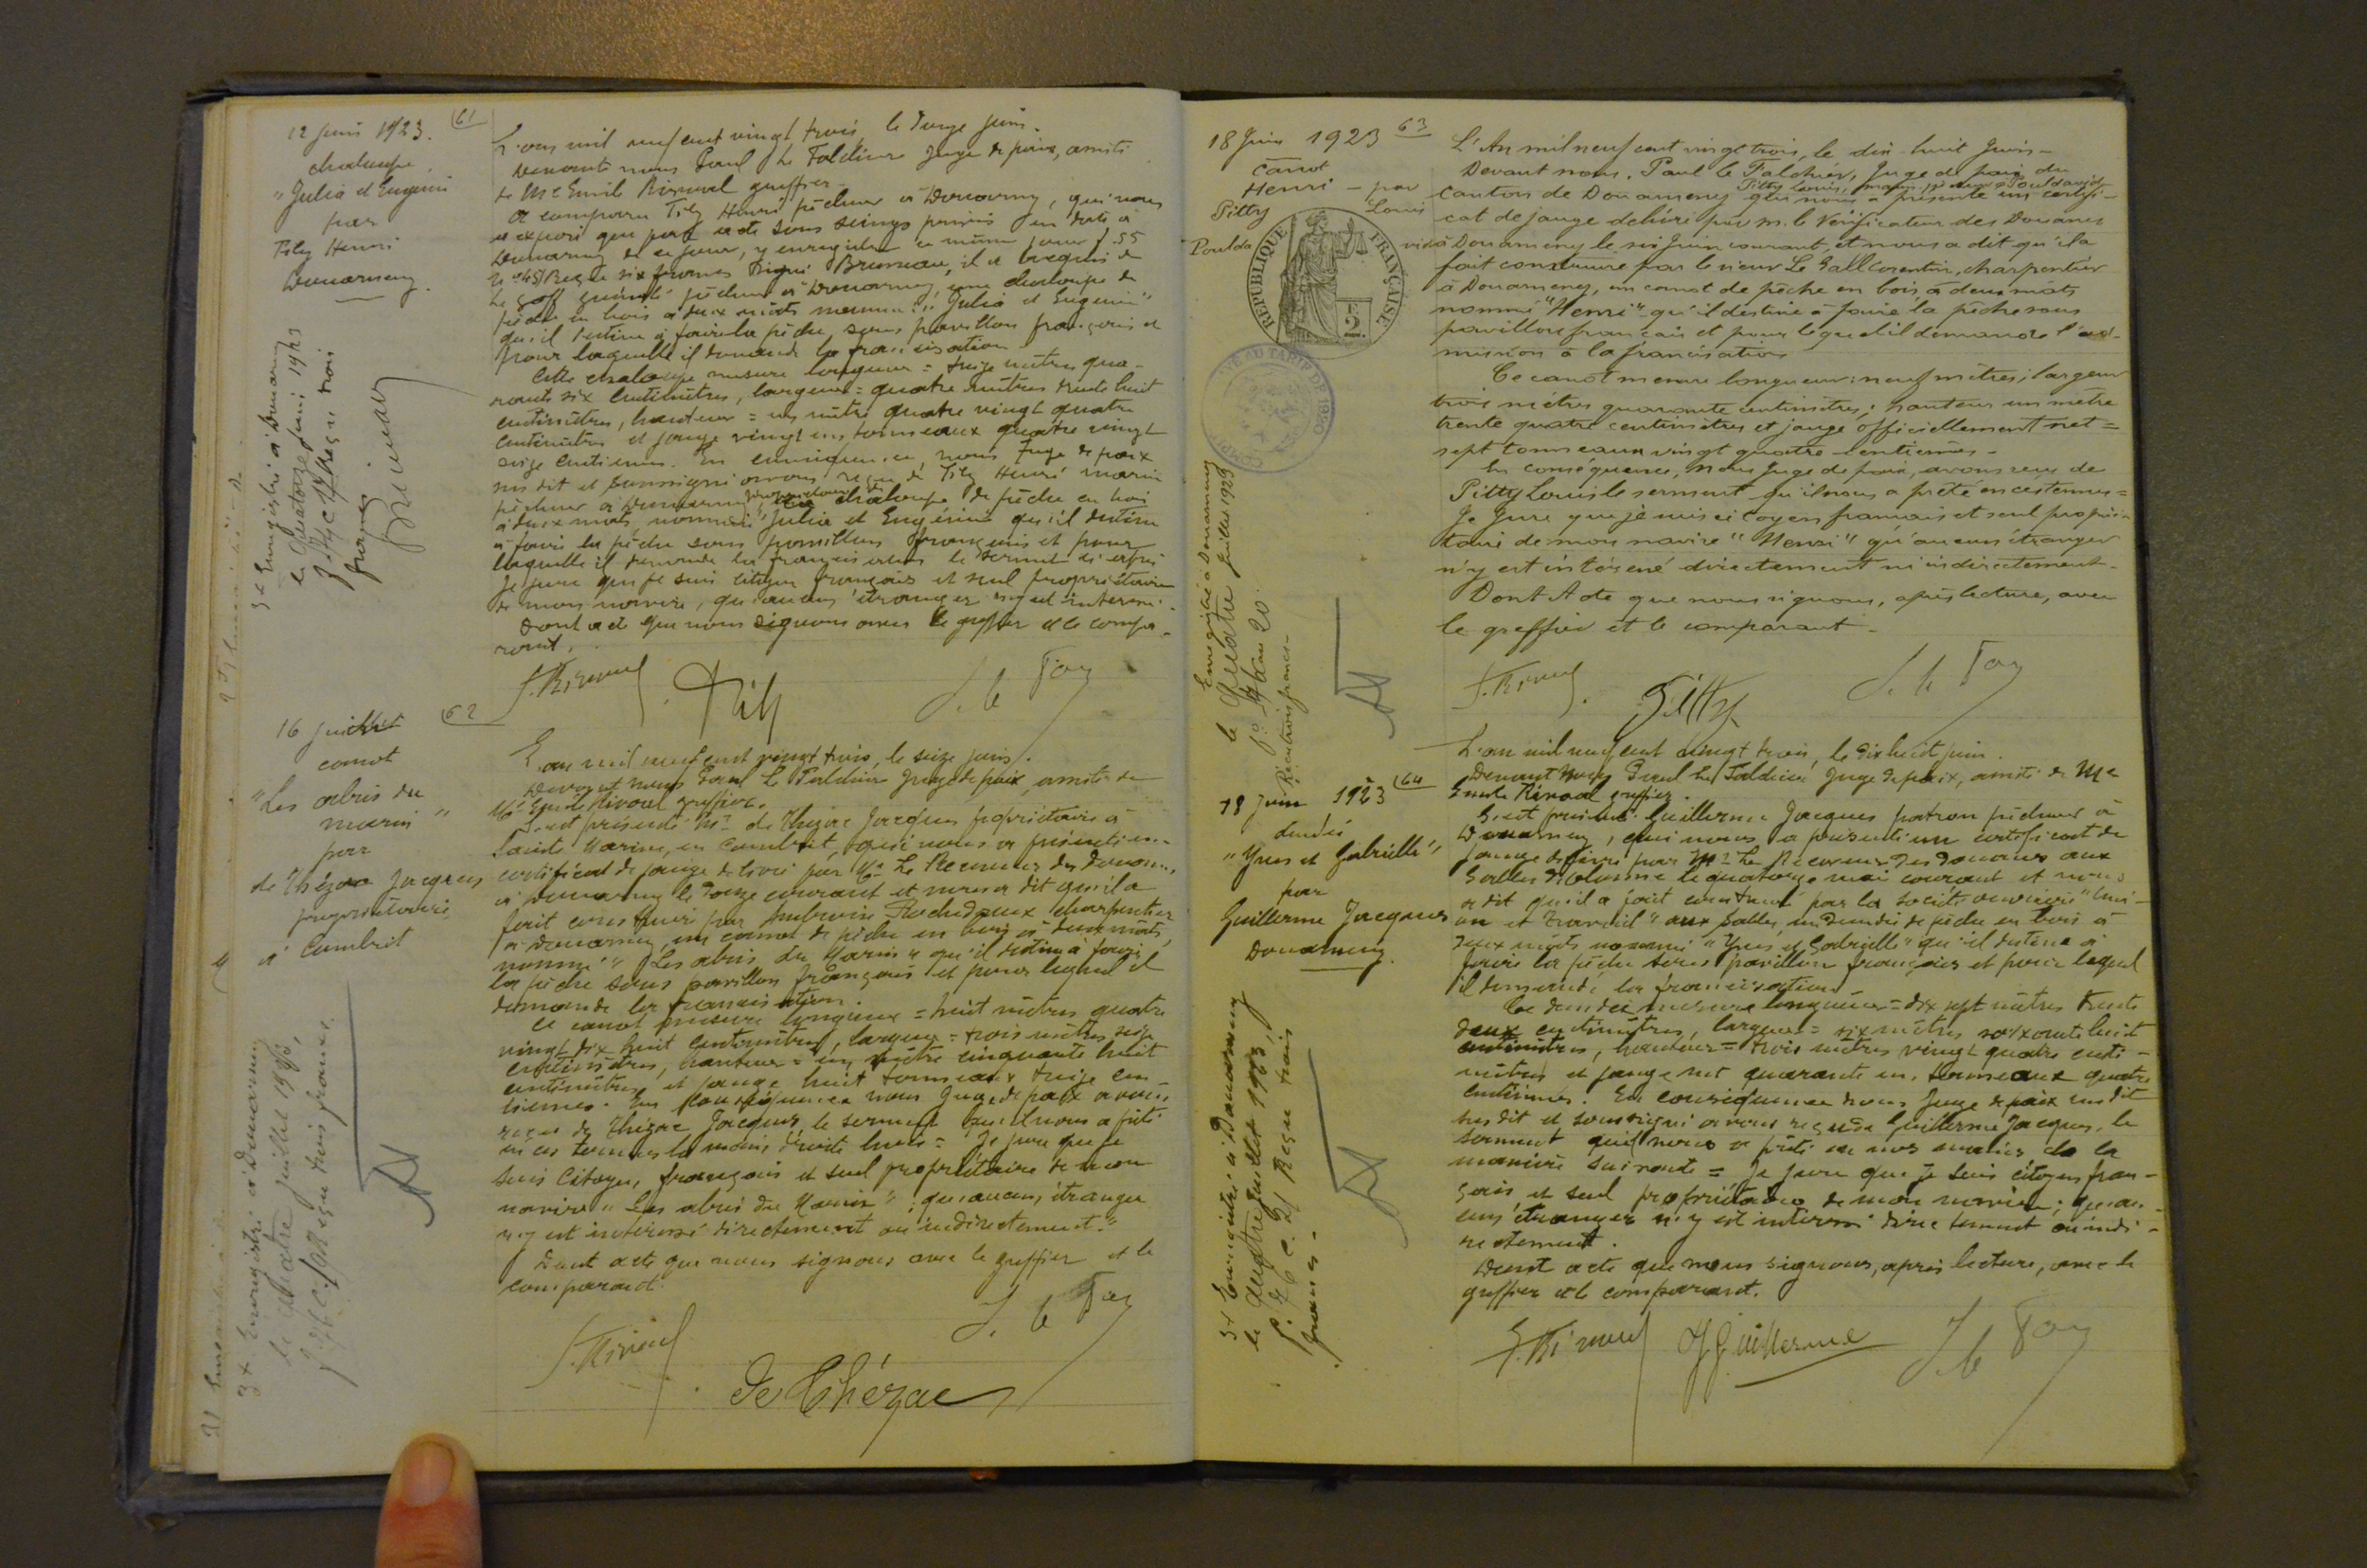 12 juin 1923.
chaloupe
"Julia et Eugénie
par
Tily Henri
Douarnenez.
61
L'an mil neuf cent vingt trois, le douze juin.
Devant nous Paul Le Falchier Juge de paix, assisté
de Me Emile Rivoal greffier.
a comparu Tily Henri pêcheur à Douarnenez, qui nous
a exposé que par acte sous seings privés en date à
Douarnenez de ce jour, y enregistré ce même jour
Reçu six francs signé Bruneau, il a acquis de
Le Goff pêcheur à Douarnenez, une chaloupe de
pêche en bois à deux mâts nommée "Julia et Eugénie"
qu'il destine à faire la pêche sous pavillon français et
pour laquelle il demande la francisation
Cette chaloupe mesure longueur = treize mètres qua-
rante six centimètres, largeur = quatre mètres trente huit
centimètres, hauteur = un mètre quatre vingt quatre
centimètres et jauge vingt un tonneaux quatre vingt
seize centièmes. En conséquence, nous Juge de paix
sus dit et soussigné avons reçu de Tily Henri marin
pêcheur à Douarnenez, propriétaire de chaloupe de pêche en bois
à deux mâts nommée "Julia et Eugénie qu'il destine
à faire la pêche sous pavillon français et pour
laquelle il demande la francisation le serment ci-après
Je jure que je suis citoyen français et seul propriétaire
de mon navire, qu'aucun étranger n'y est intéressé.
Dont acte que nous signons avec le greffier et le compa-
rant.
Enregistré à Douarnenez
le Quatorze juin 1923
Reçu trois
francs
Bruneau
E. Rivoal
Tily
P. le Fal
16 juillet
canot
"Les abris du
marin"
par
de Thézac Jacques
propriétaire
à Combrit
62
L'an mil neuf cent vingt trois, le seize juin.
Devant nous Paul Le Falchier Juge de paix, assisté de
Me Emile Rivoal greffier.
S'est présenté Mr de Thézac Jacques propriétaire à
Sainte Marine, en Combrit, qui nous a présenté un
certificat de jauge délivré par Mr Le Receveur des douanes
à Douarnenez le douze courant et nous a dit qu'il a
fait construire par Ambroise charpentier
à Douarnenez, un canot de pêche en bois à deux mâts,
nommé "Les abris du Marin" qu'il destine à faire
la pêche sous pavillon français et pour lequel il
demande la francisation.
Ce canot mesure longueur = huit mètres quatre
vingt dix huit centimètres, largeur = trois mètres seize
centimètres, hauteur = un mètre cinquante huit
centimètres et jauge huit tonneaux treize cen-
tièmes. En conséquence nous Juge de paix avons
reçu de Thézac Jacques, le serment qu'il nous a prêté
en ces termes la main droite levée = Je jure que je
suis citoyen français et seul propriétaire de mon
navire "Les abris du Marin"; qu'aucun étranger
n'y est intéressé directement ou indirectement."
Dont acte que nous signons avec le greffier et le
comparant.
Enregistré à Douarnenez
le quatre juillet 1923,
Reçu trois francs.
E. Rivoal
P. le Fal
de Thézac
18 Juin 1923
Canot
Henri – par
Pitty Louis
Pouldavid
REPUBLIQUE FRANÇAISE
2 F
TARIF DE 1920
63
L'An mil neuf cent vingt trois, le dix-huit Juin –
Devant nous, Paul le Falchier, Juge de paix du
canton de Douarnenez
Pitty Louis, marin-pêcheur à Pouldavid
qui nous a présenté un certifi-
cat de jauge délivré par M. le Vérificateur des Douanes
à Douarnenez le six Juin courant, et nous a dit qu'il a
fait construire par le sieur Le Gall Corentin, charpentier
à Douarnenez, un canot de pêche en bois, à deux mâts
nommé "Henri" qu'il destine à faire la pêche sous
pavillon français et pour lequel il demande l'ad-
mission à la francisation
Ce canot mesure longueur: neuf mètres; largeur
trois mètres quarante centimètres; hauteur un mètre
trente quatre centimètres et jauge officiellement net =
sept tonneaux vingt quatre centièmes –
En conséquence, Nous Juge de paix, avons reçu de
Pitty Louis le serment qu'il nous a prêté en ces termes =
Je Jure que je suis citoyen français et seul proprié-
taire de mon navire "Henri" qu'aucun étranger
n'y est intéressé directement ni indirectement –
Dont Acte que nous signons, après lecture, avec
le greffier et le comparant –
Enregistré à Douarnenez
le Quatre Juillet 1923
E. Rivoal
Pitty
P. le Fal
18 Juin 1923
dundée
"Yves et Gabrielle",
par
Guillerme Jacques
Douarnenez.
64
L'an mil neuf cent vingt trois, le dix huit juin.
Devant Nous Paul Le Falchier Juge de paix, assisté de Me
Emile Rivoal greffier.
S'est présenté Guillerme Jacques patron pêcheur à
Douarnenez, qui nous a présenté un certificat de
jauge délivré par Mr Le Receveur des Douanes aux
Sables d'Olonne le quatorze mai courant et nous
a dit qu'il a fait construire par la société ouvrière "Uni-
on et Travail" aux Sables, un dundée de pêche en bois à
deux mâts nommé "Yves et Gabrielle" qu'il destine à
faire la pêche sous pavillon français et pour lequel
il demande la francisation
Ce dundée mesure longueur = dix sept mètres trente
deux centimètres, largeur = six mètres soixante huit
centimètres, hauteur = trois mètres vingt quatre centi-
mètres et jauge net quarante un tonneaux quatre
centièmes. En conséquence nous Juge de paix sus dit
sus dit et soussigné avons reçu de Guillerme Jacques, le
serment qu'il nous a prêté en nos mains de la
manière suivante = Je jure que je suis citoyen fran-
çais et seul propriétaire de mon navire; qu'au-
cun étranger n'y est intéressé directement ou indi-
rectement.
Dont acte que nous signons, après lecture, avec le
greffier et le comparant.
Enregistré à Douarnenez
le quatre juillet 1923,
Reçu trois
francs –
E. Rivoal
J. Guillerme
P. le Fal